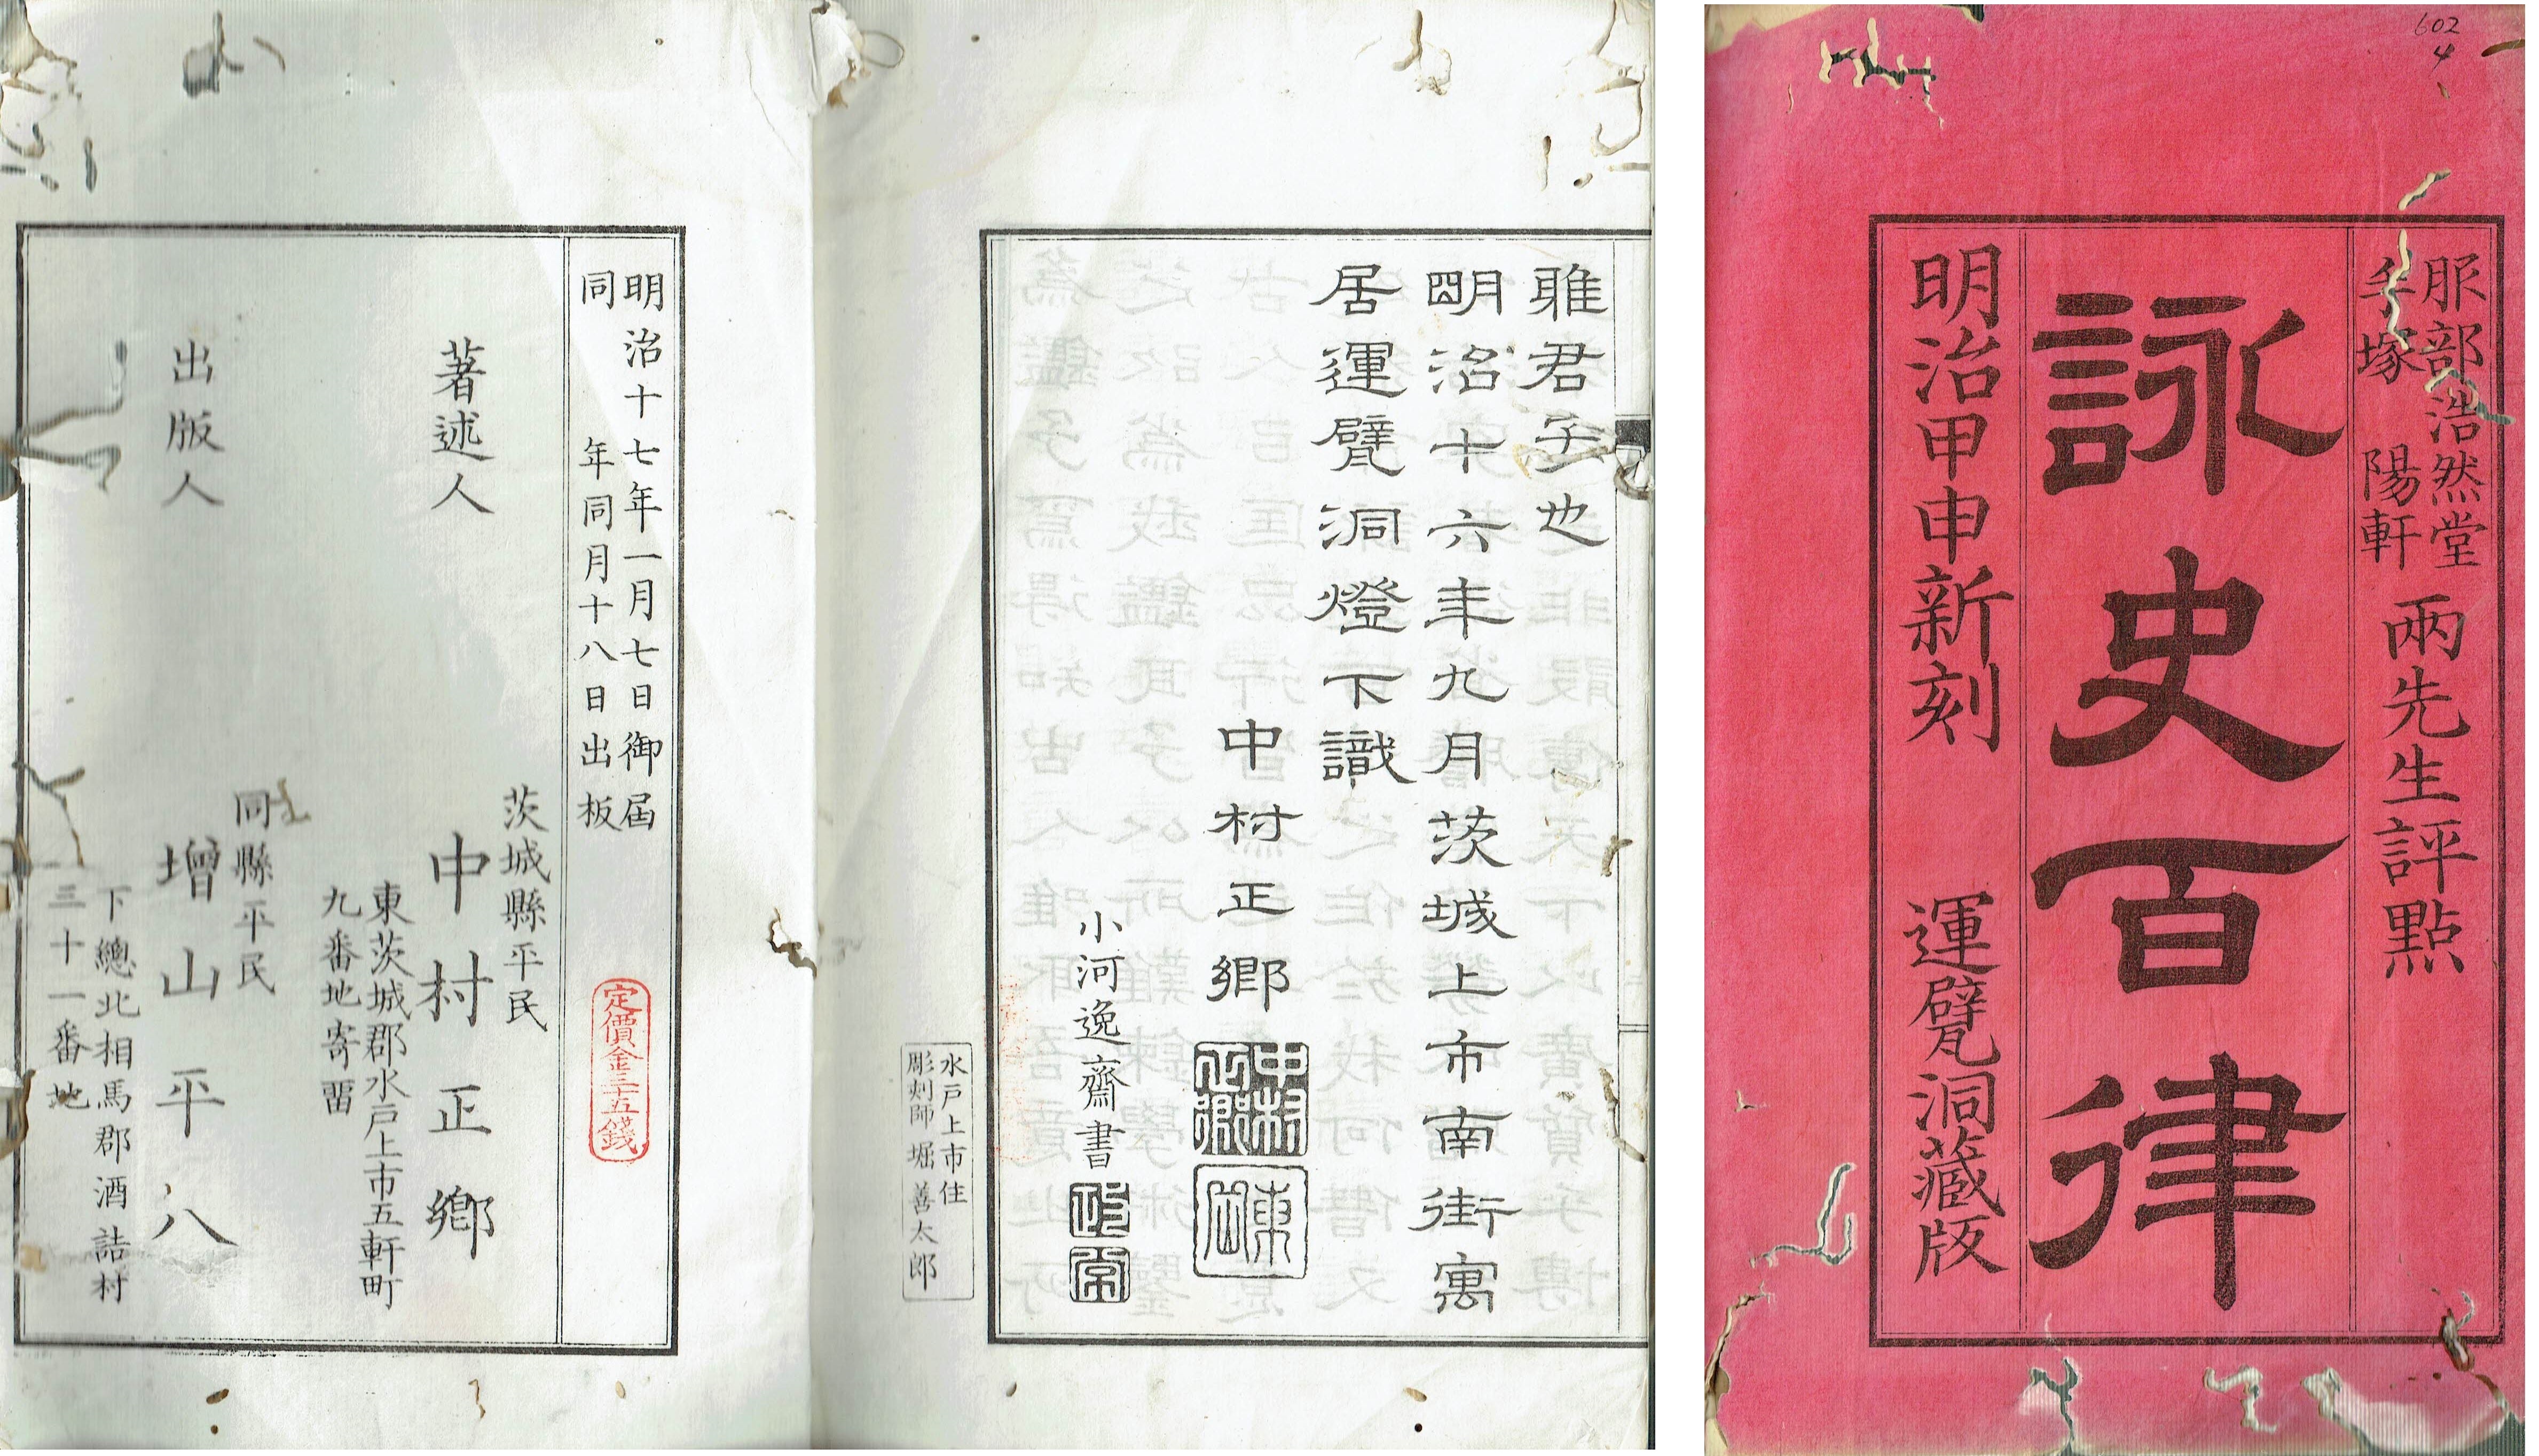 602
4
服部浩然堂
手塚陽軒
兩先生評點
詠史百律
明治甲申新刻　運甓洞藏版
雅君子也
明治十六年九月茨城上市南街寓
居運甓洞燈下識
中村正鄉
中村正鄉
東岡
小河逸齋書
水戸上市住
彫刻師堀善太郎
明治十七年一月七日御屆
同年同月十八日出板
定價金三五錢
著述人
茨城縣平民
中村正鄉
東茨城郡水戸上市五軒町
九番地寄畱
出版人
同縣平民
增山平八
下總北相馬郡酒詰村
三十一番地